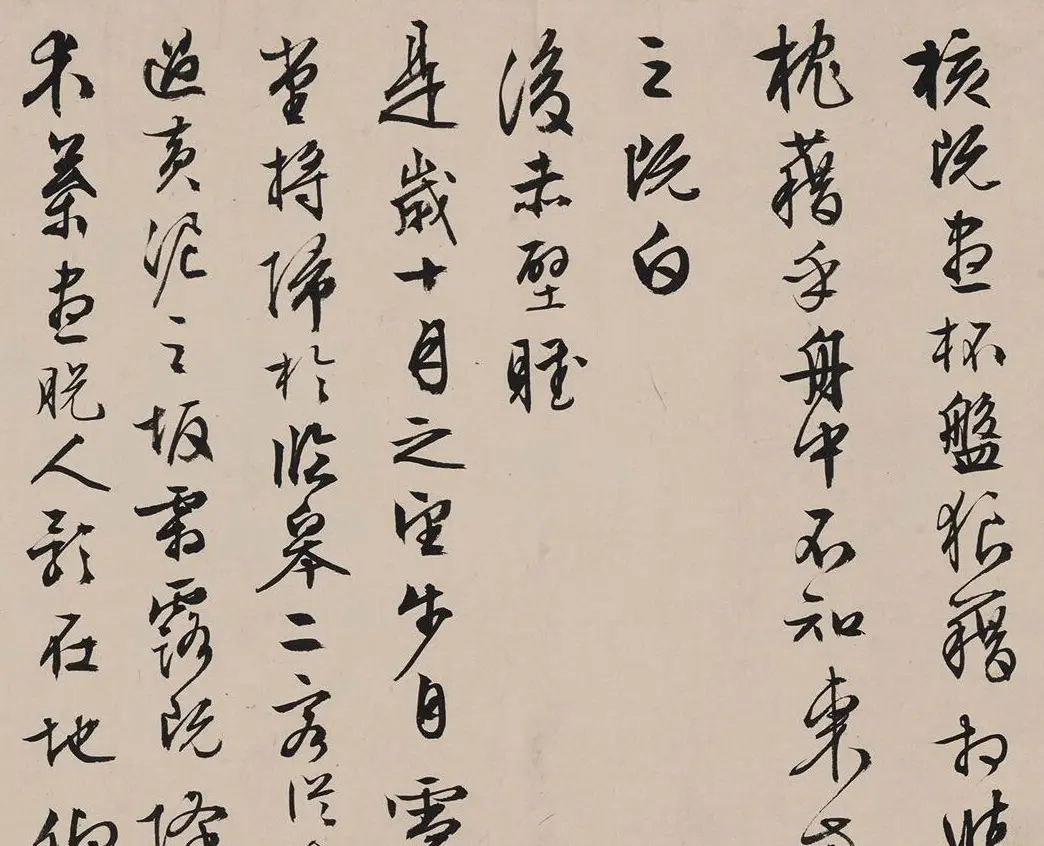 核既盡杯盤狼藉相與
枕藉乎舟中不知東方
之既白
後赤壁賦
是歲十月之望步自雪
堂將歸於臨皋二客從
過黃泥之坂霜露既降
木葉盡脫人影在地仰